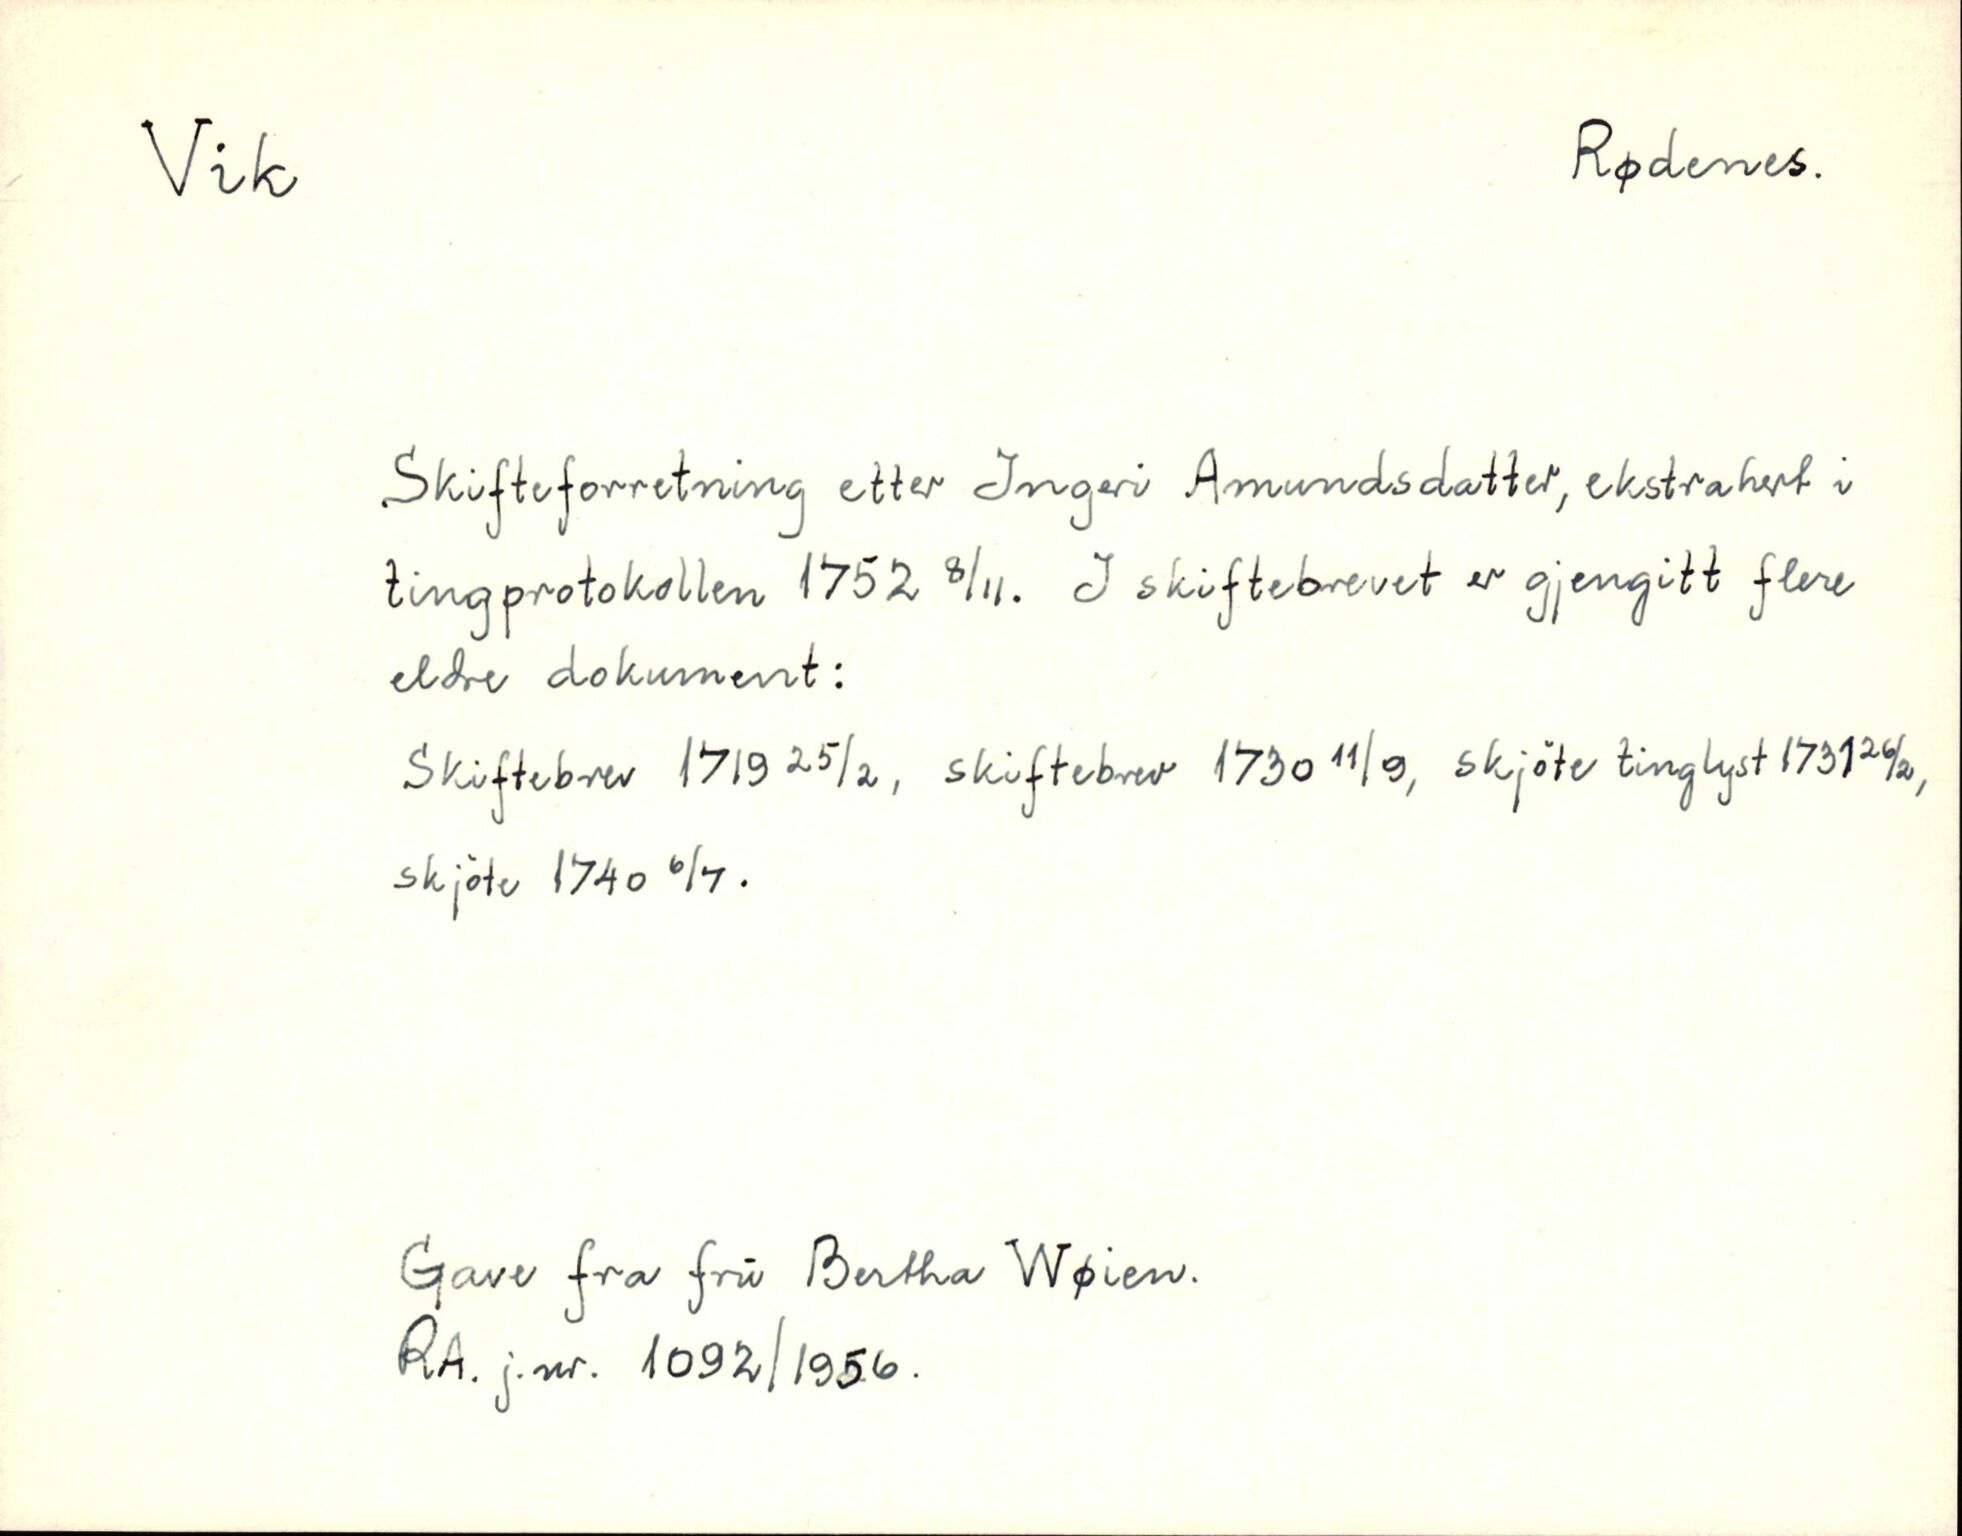 Vik
Rødenes.
Skifteforretning etter Ingeri Amundsdatter, ekstrahert i
tingprotokollen 1752 8/11. I skiftebrevet er gjengitt flere
eldre dokument:
Skiftebrev 1719 25/2, skiftebrev 1730 11/9, skjöte tinglyst 1731 26/2,
skjöte 1740 6/7.
Gave fra frū Bertha Wøien.
RA. j.nr. 1092/1956.